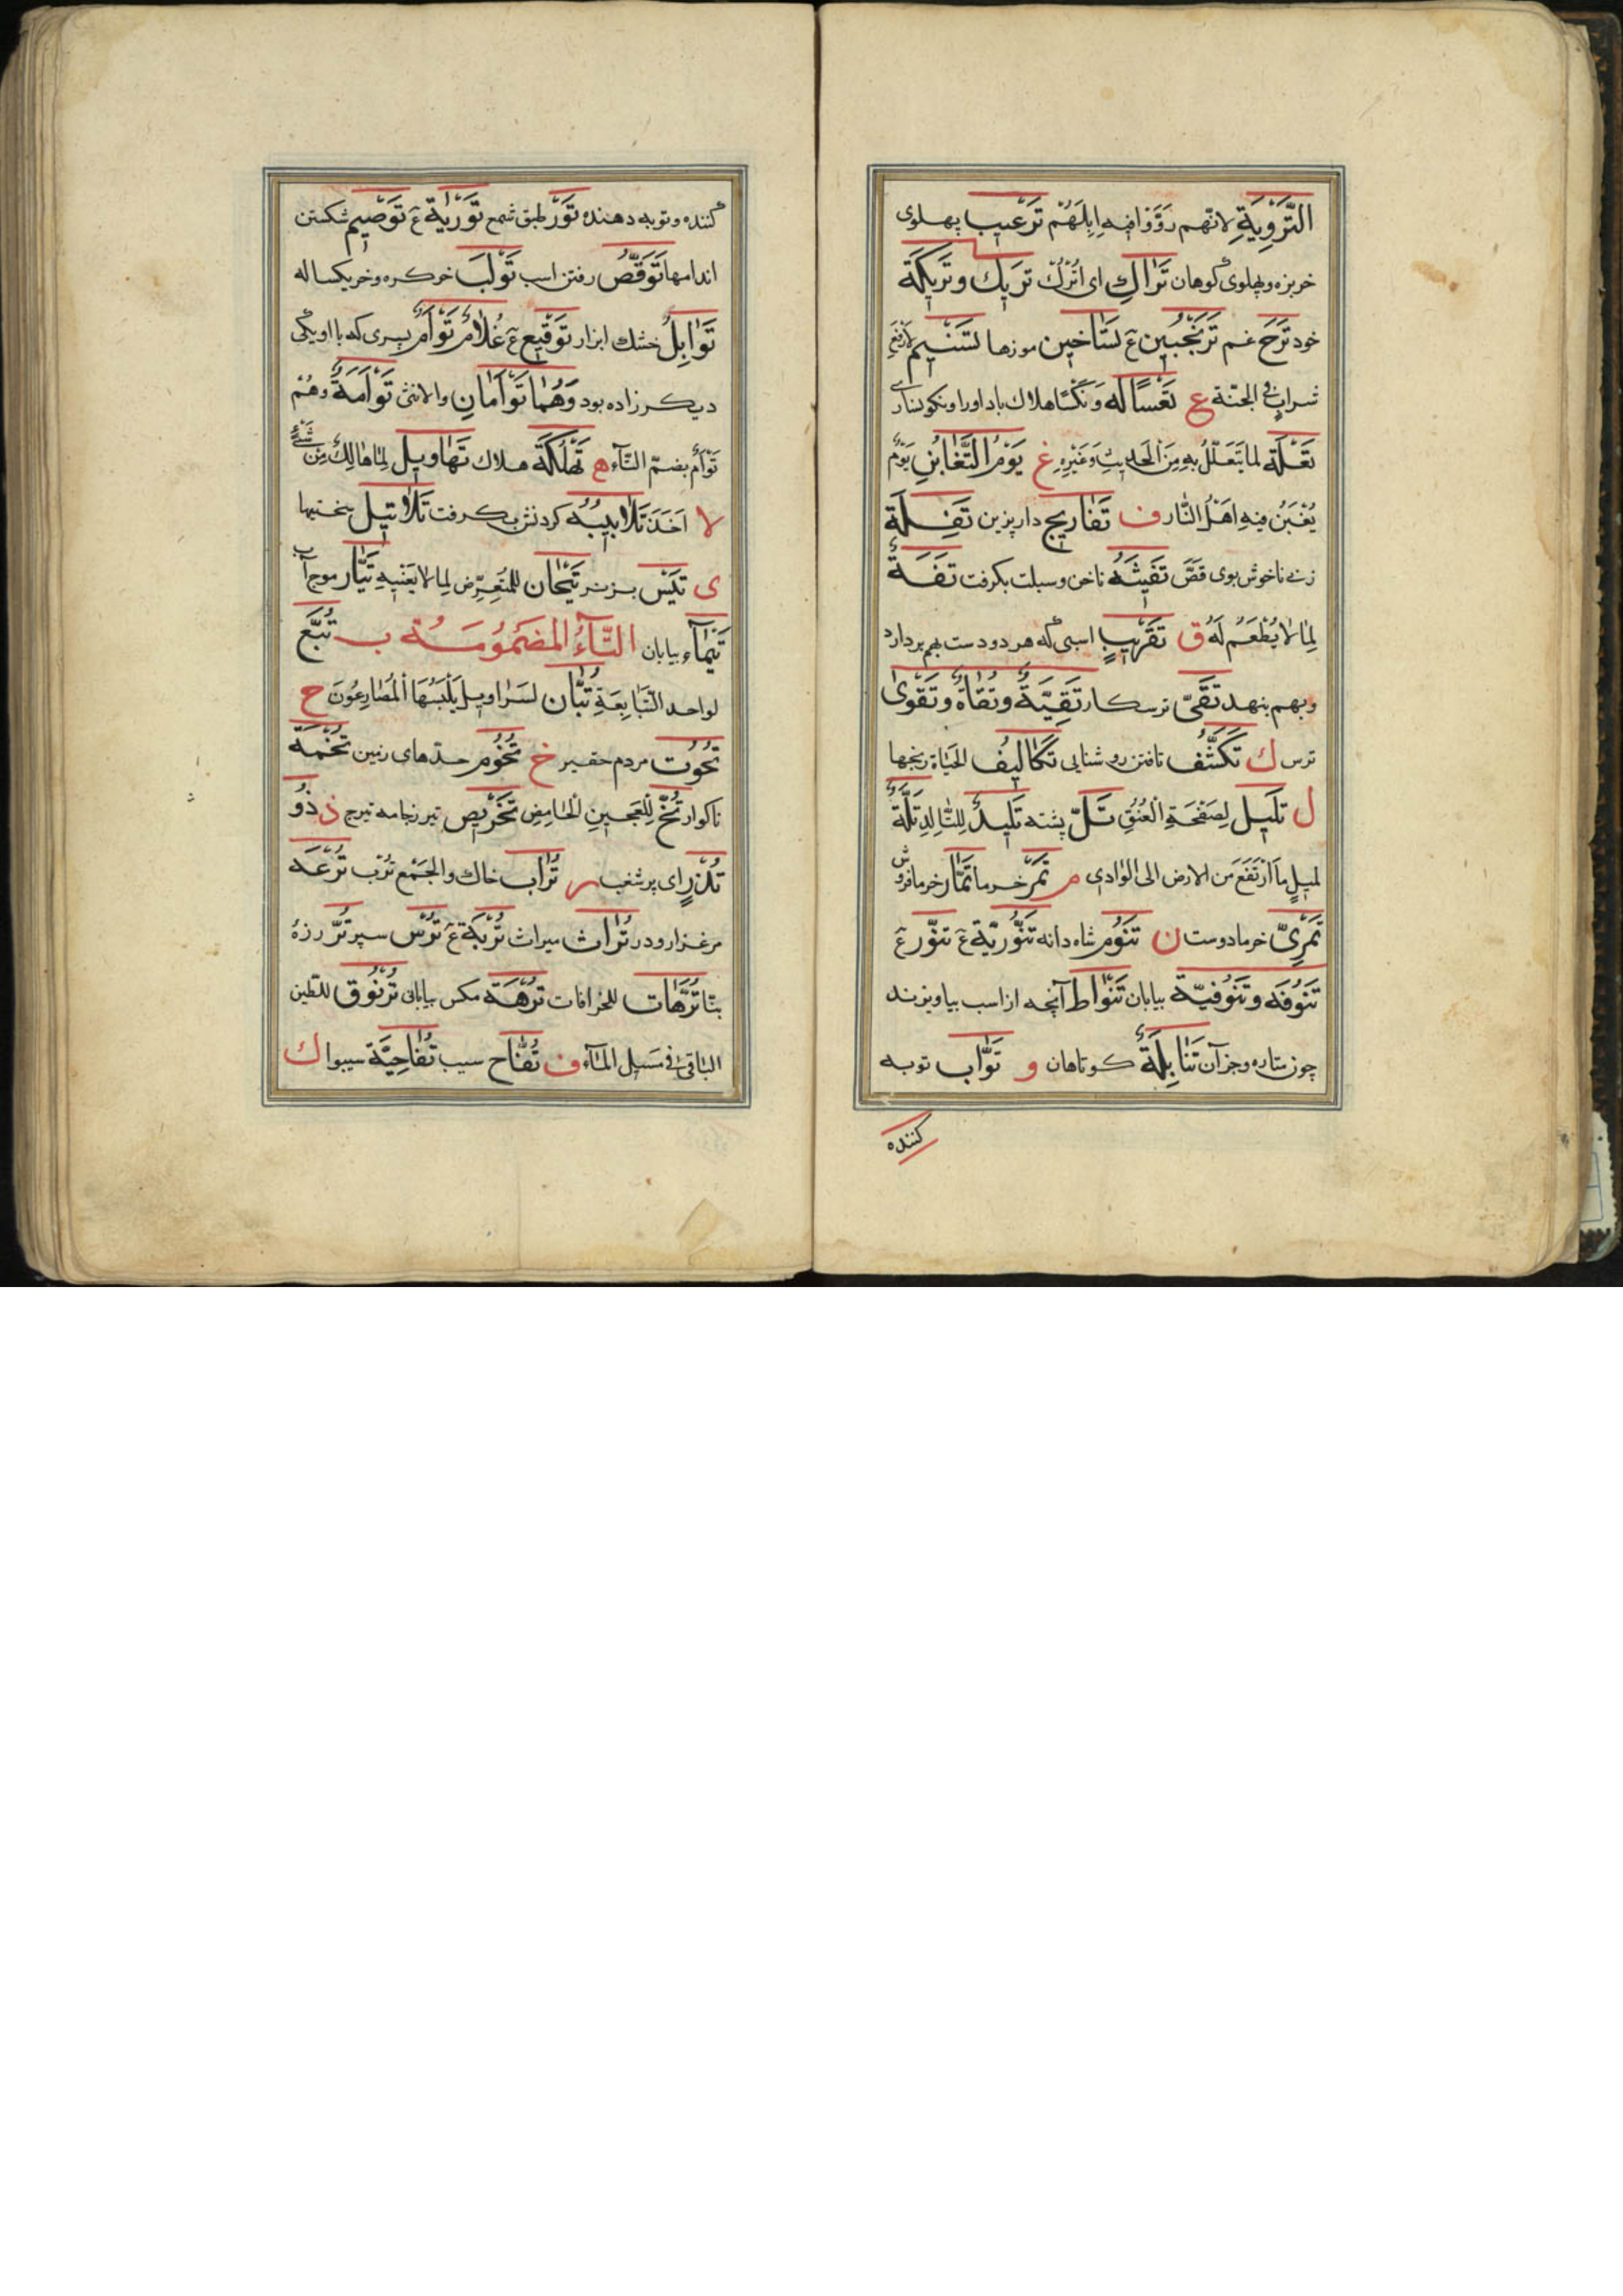 التَّرْوِيَةِ لانّهم رَوَّوْا فيه اِبِلَهُمْ تَرْعيب پهلوی
خربزه وپهلوی کوهان تَرَاكِ ای اُتْرُكْ تَرِيك وتَرِيكَة
خود تَرَح غم تَرَنْجُبين عَ تَسَاخين موزها تَسْنيم لارفع
شراب فی الجنّة ع تَعْسًا لَه وَنَكْسًا هلاك باد اورا ونکونساری
تَعِلَّة لما يَتَعَلَّلُ بِهِ مِنَ الْحَديثِ وَغَيْرِهِ غ يَوْمُ التَّغَابُنِ يَوْمٌ
يُغْبَنُ فيهِ اَهْلُ النَّار ف تَفَاريج دارپزین تَفِلَة
زنی ناخوش بوی قَصَّ تَفَثَهُ ناخن وسبلت بکرفت تَفَهٌ
لِمَا لا يُطْعَمُ لَهُ ق تَقْريب اسبی که هر دو دست بهم بردارد
وبهم بنهد تَقِیّ ترسکار تَقِيَّةٌ وتُقَاةٌ وتَقْوٰى
ترس ك تَكَشُّف تافتن روشنایی تَكَاليفُ الحَيَاة رنجها
ل تَليل لِصَفْحَةِ الْعُنُقِ تَلّ پشته تَليدٌ لِلتَّالِدِ تَلْعَةٌ
لمسيل ما ارْتَفَعَ من الارض الى الوادی م تَمْر خرما تَمَّار خرما فروش
تَمْرِیّ خرما دوست ن تَنُّوم شاه دانه تَنُّورِيَّة عَ تَنُّور عَ
تَنُوفَه وتَنُوفِيَّة بیابان تَنْوَاط آنچه از اسب بیاویزند
چون ستاره وجز آن تَنَابِلَةٌ کوتاهان و تَوَّاب توبه
کننده
کننده وتوبه دهنده تَوْر طبق شمع تَوْرِيَة عَ تَوْصيم شکستن
اندامها تَوَقُّصٌ رفتن اسب تَوْلَبٌ خرکره وخر یکساله
تَوَابِلُ خشك ابزار تَوْقيع عَ غُلَامٌ تَوْأَمٌ پسری که با او یکی
دیکر زاده بود وَهُمَا تَوْأَمَانِ والانثى تَوْأَمَةٌ وهُمْ
تُوَأمٌ بضمّ التّآء ه تَهْلُكَة هلاك تَهَاويل لِمَا هَالَكَ مِنْ شَیْءٍ
لا اَخَذَ تَلَابيبَهُ کردنش بکرفت تَلَاتيل سختیها
ی تَيْس بز نر تَيَّحَان للمُتَعَرِّضِ لِمَا لا يَعْنيهِ تَيَّار موج آب
تَيْمَآء بیابان التَّآءُ المَضْمُومَة ب تُبَّع
لواحد التَّبَابِعَةِ تُبَّان لِسَرَاويل يَلْبَسُهَا الْمُصَارِعُونَ ح
تُحُوت مردم حقیر خ تُخُوم حدّهای زمین تُخَمَة
ناکوار تُخّ لِلْعَجينِ الْحَامِضِ تُخْريص تیر نجامه تیرج ذ ذُو
تُذْرَإٍ ای پر شغب ر تُرَاب خاك والجَمْع تُرْب تُرْعَة
مرغزار ودر تُرَاث میراث تُرْبَة عَ تُرْس سپر تُرّ رزهٔ
بنّا تُرَّهَات للخرافات تُرَّهَة مکس بیابانی تُرْنُوق للطّین
الباقی فی مَسيل المَآء ف تُفَّاح سیب تُفَّاحِيَّة سیبوا ك